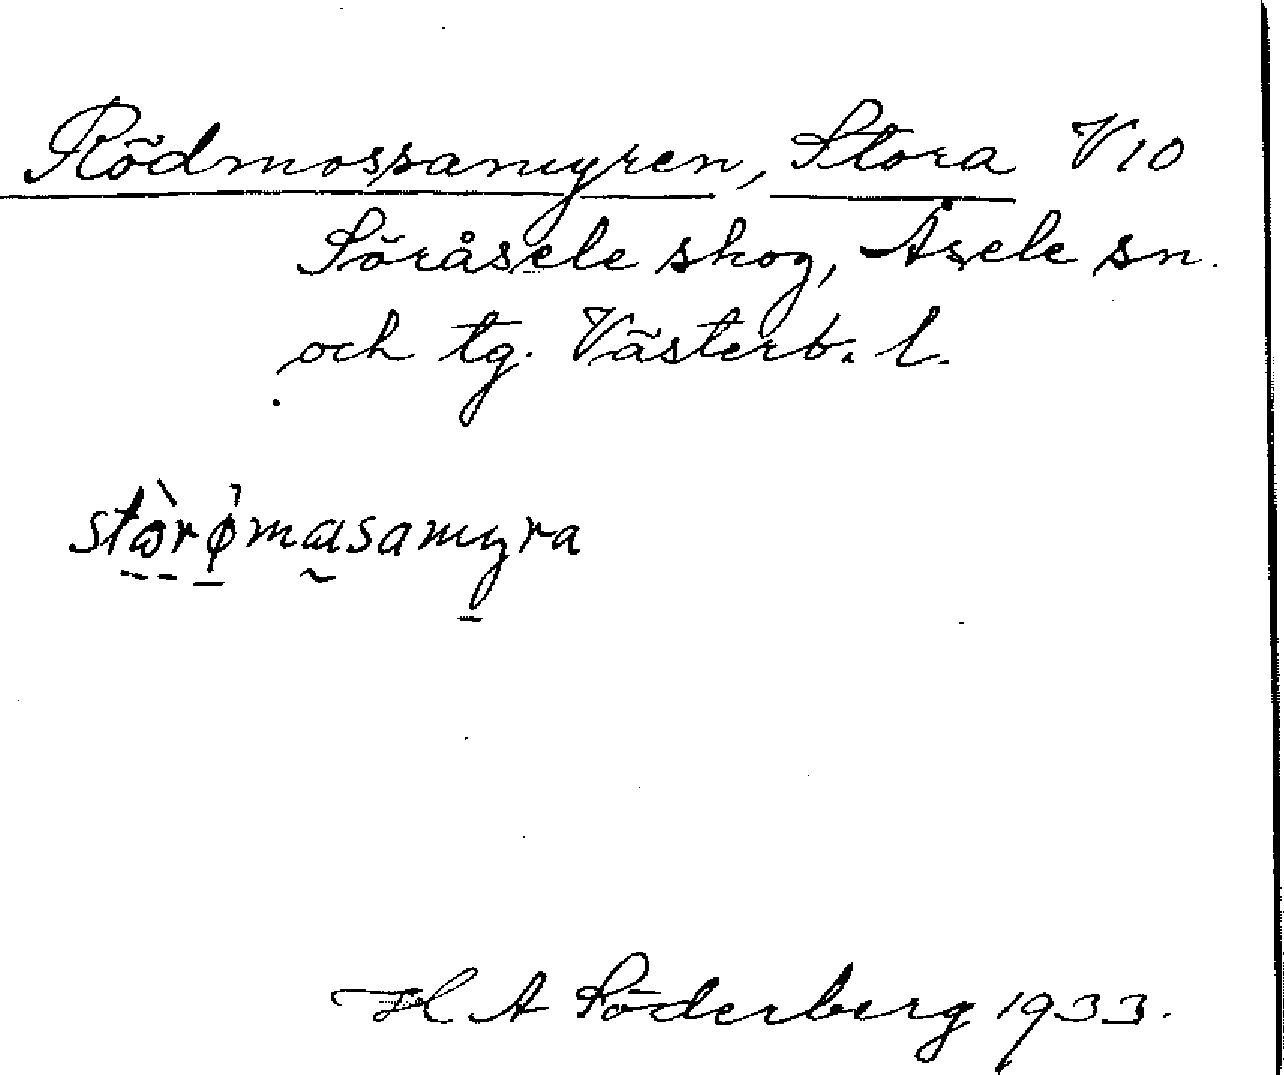 Rödmossamyren, Stora V10
Söråsele skog, Åsele sn.
och tg. Västerb. l.
stòrǿmɑsamyra
H A Söderberg 1933.